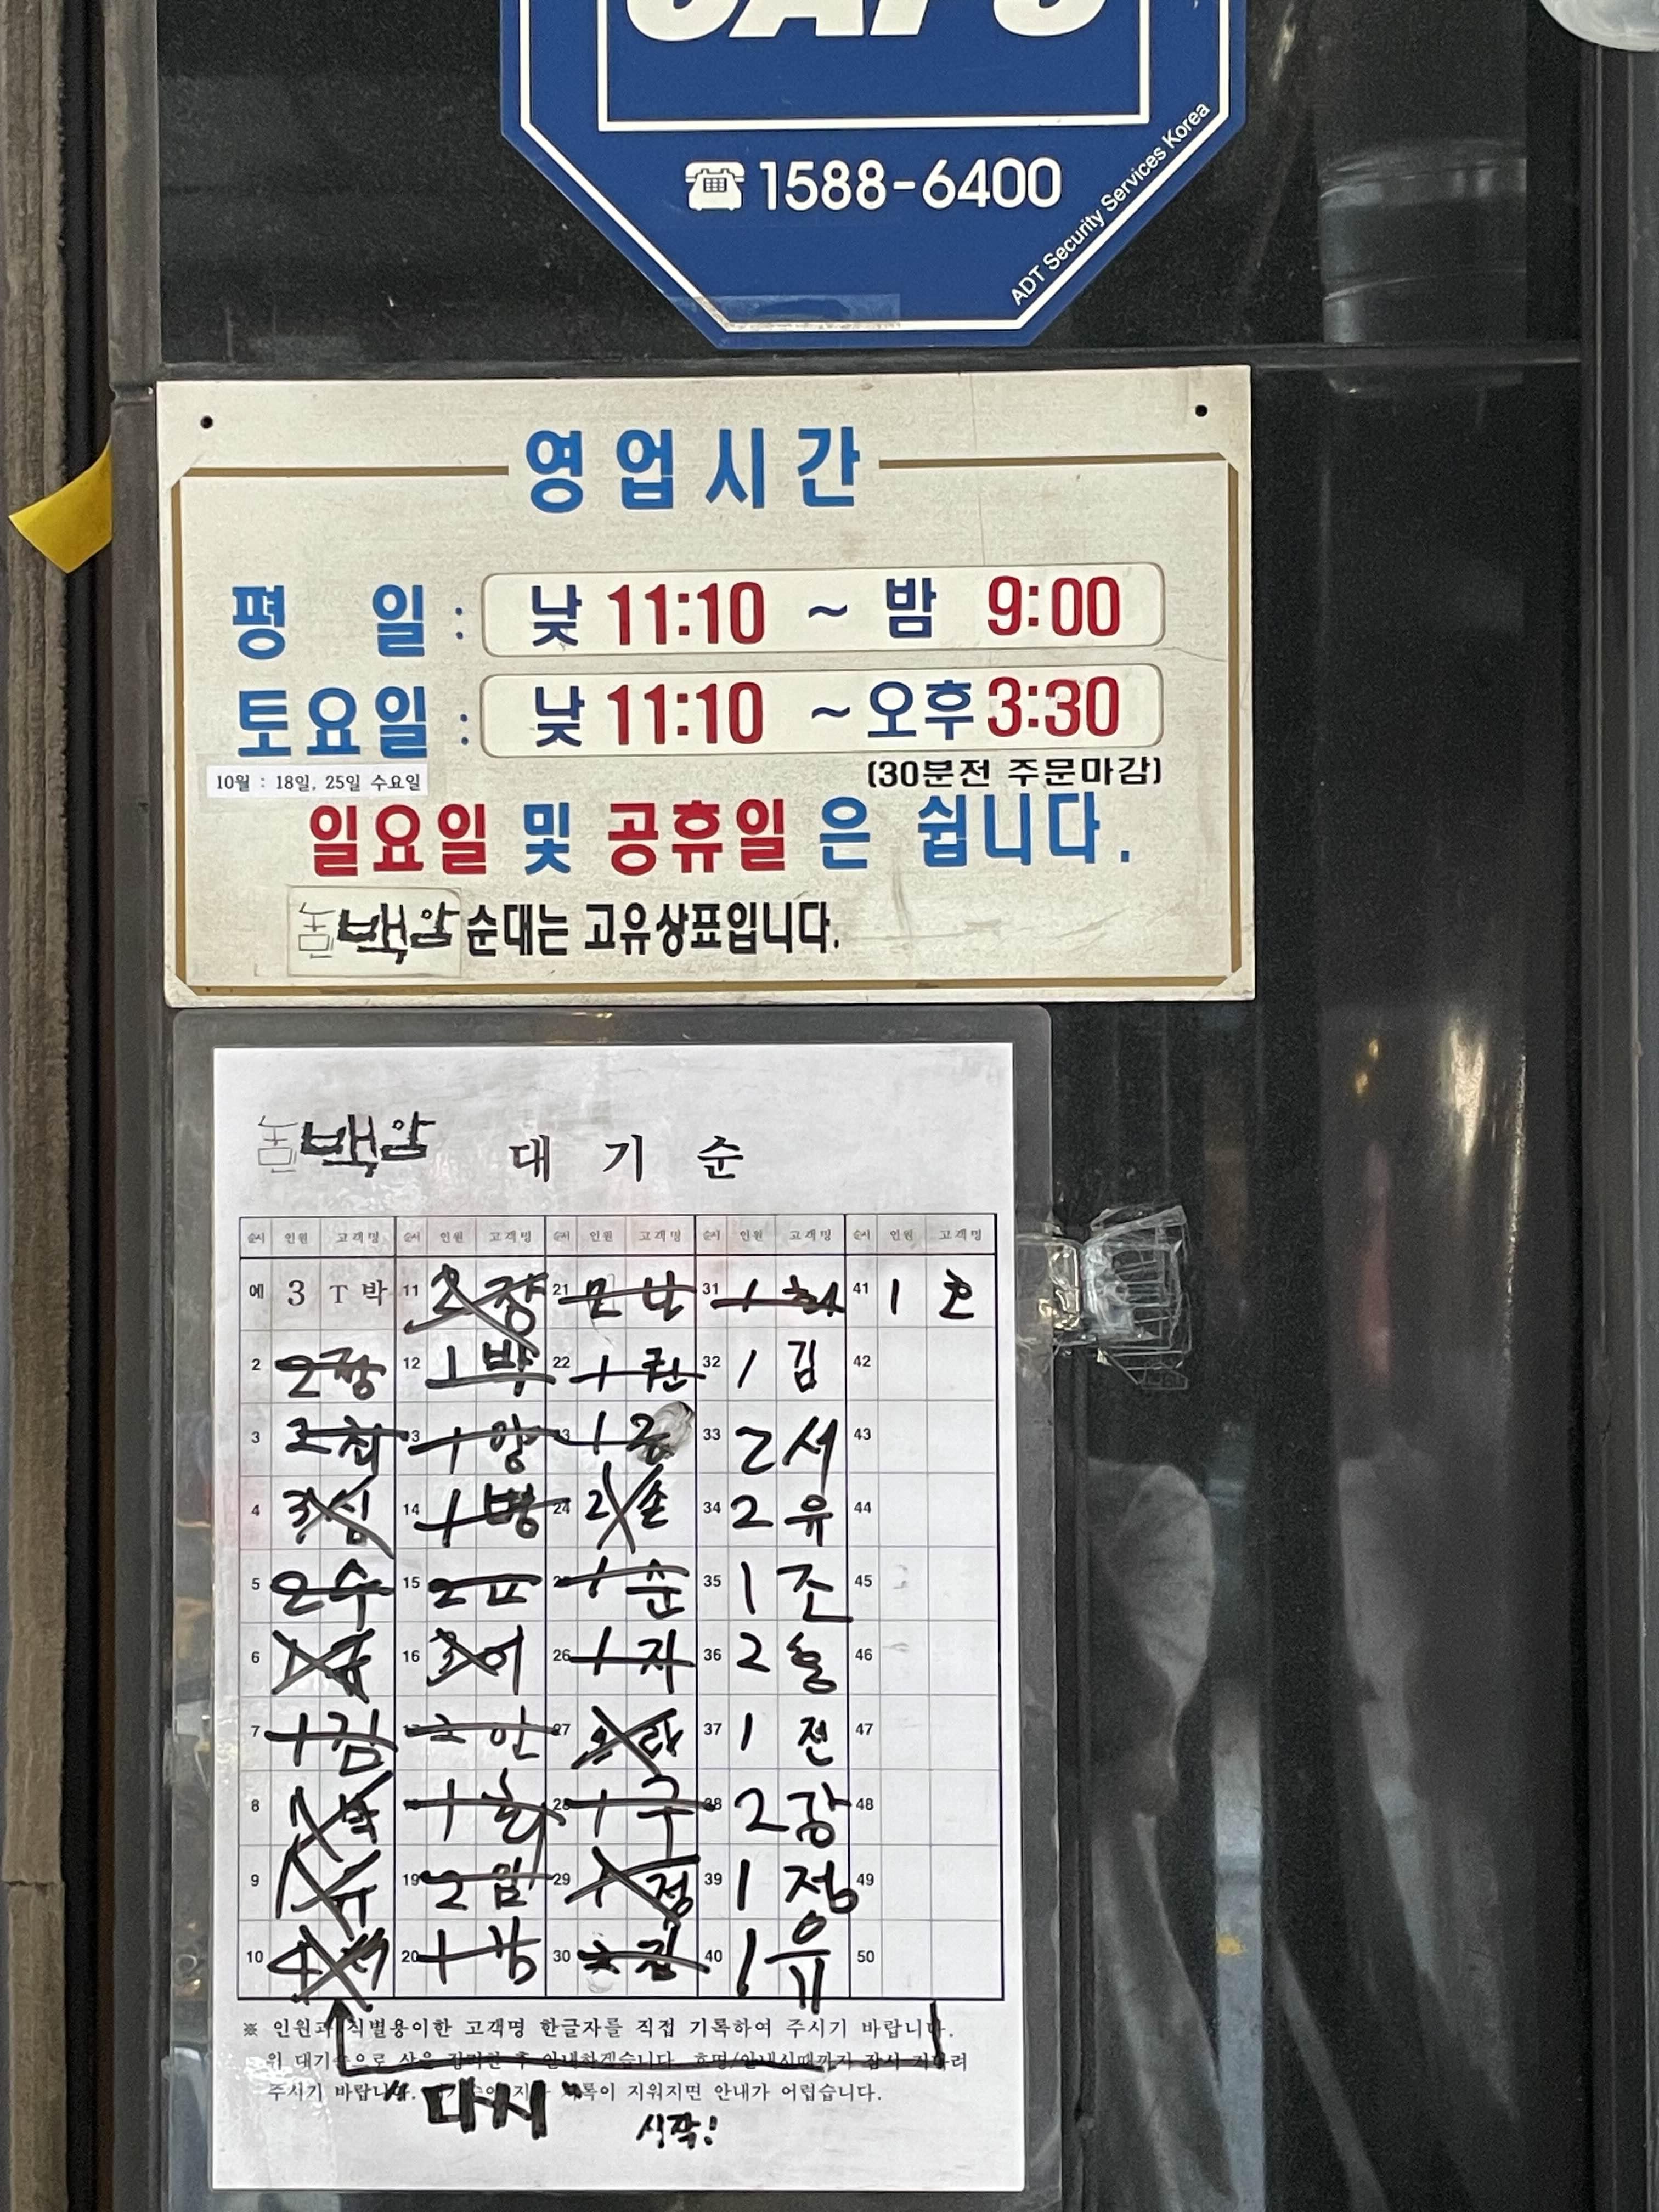 CAPS
☎ 1588-6400
ADT Security Services Korea
영업시간
평 일 : 낮 11:10 ~ 밤 9:00
토요일 : 낮 11:10 ~ 오후 3:30
(30분전 주문마감)
10월 : 18일, 25일 수요일
일요일 및 공휴일 은 쉽니다.
농민백암 순대는 고유상표입니다.
농민백암 대 기 순
순서 인원 고객명 순서 인원 고객명 순서 인원 고객명 순서 인원 고객명 순서 인원 고객명
예 3 T 박 11 21 31 1 41 1
2 2 장 12 1 박 22 1 권 32 1 김 42
3 2 최 1 양 1 33 2 서 43
4 3 심 14 1 병 24 2 손 34 2 유 44
5 2 수 15 2 요 1 순 35 1 조 45
6 16 3 어 26 1 자 36 2 송 46
7 1 김 2 안 27 라 37 1 전 47
8 1 1 구 2 강 48
9 1 유 19 2 임 29 1 정 39 1 정 49
10 20 1 남 30 2 김 40 1 유 50
※ 인원과 식별용이한 고객명 한글자를 직접 기록하여 주시기 바랍니다.
위 대기순으로 상을 정리한 후 안내하겠습니다. 호명/안내시때까지 잠시 기다려
주시기 바랍니다. 록이 지워지면 안내가 어렵습니다.
"다시"
시작!